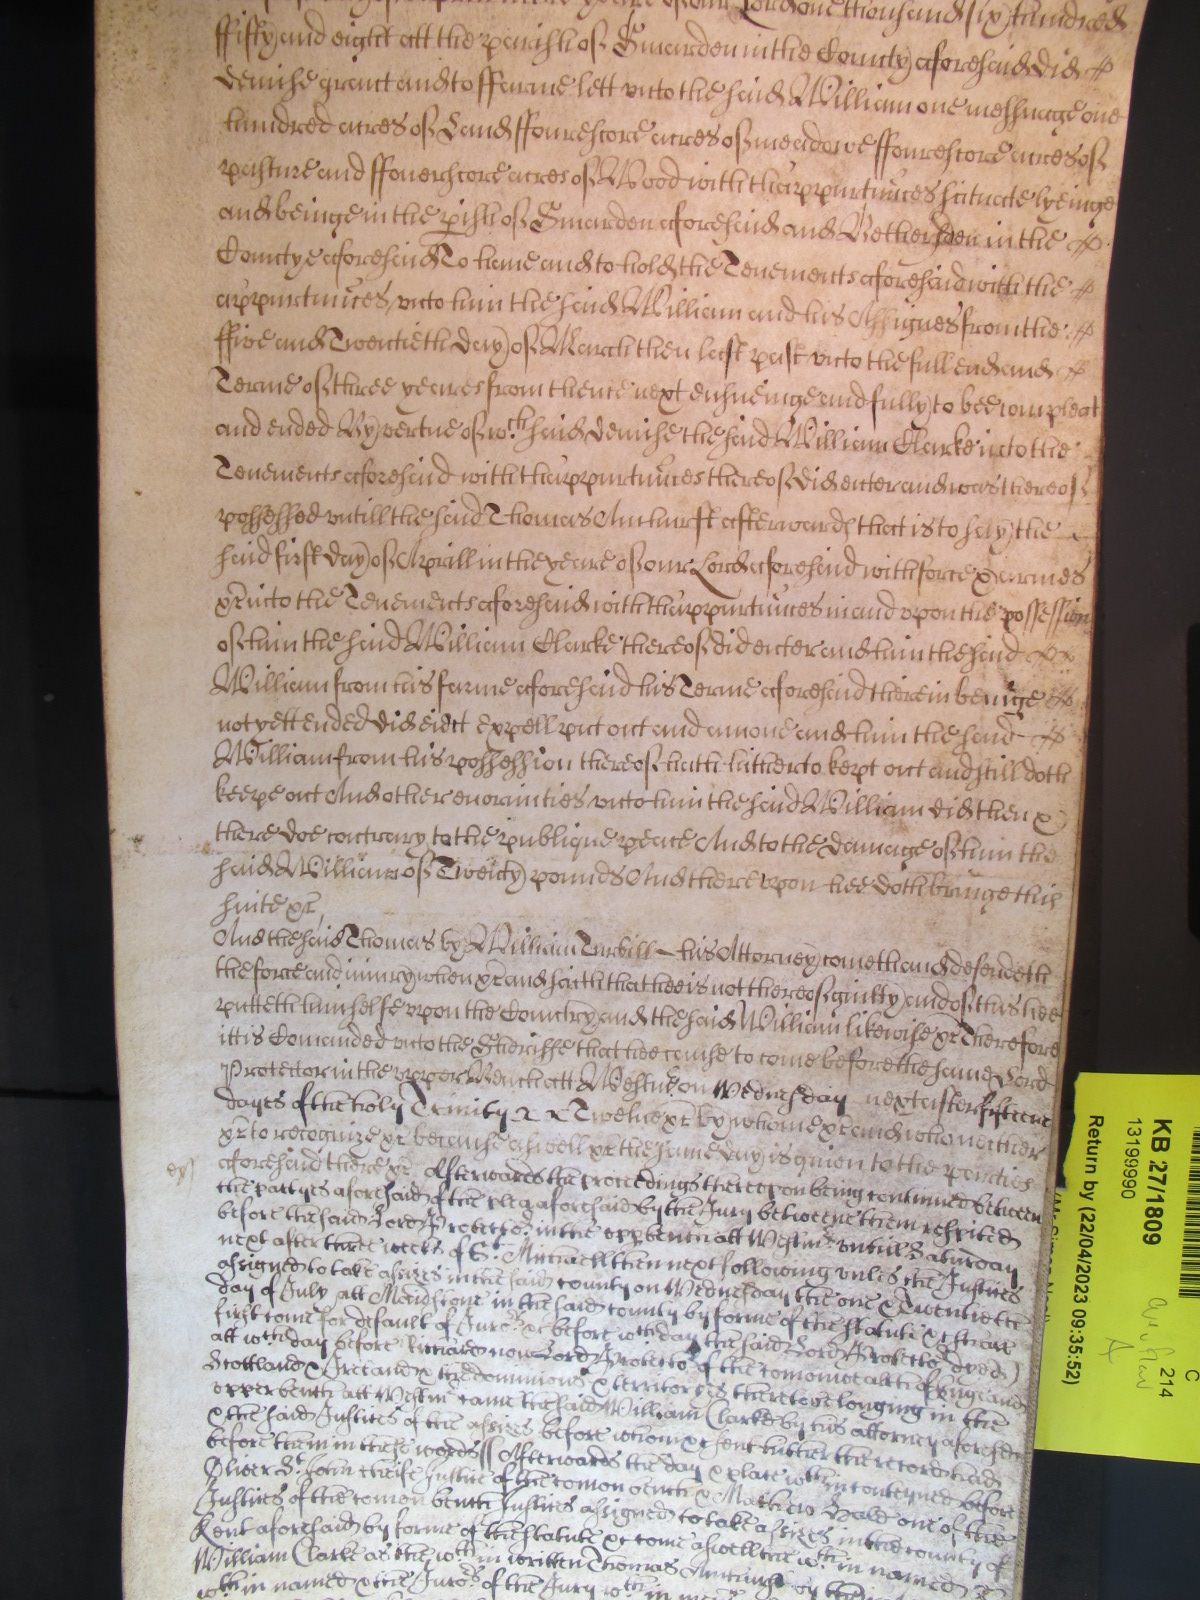 yeare of our Lord one thousand six hundred
ffifty and eight att the parish of Smarden in the County aforesaid did
demise grant and to ffarme lett vnto the said William one messuage one
hundred acres of Land ffourescore acres of meadowe ffourescore acres of
pasture and ffouerscore acres of Wood with thappurtnces scituate lyeinge
and beinge in the pish of Smarden aforesaid and Bethersden in the
Countye aforesaid To haue and to hold the Tenements aforesaid with the
appurtnces vnto him the said William and his Assignes from the
ffive and Twentieth day of March then last past vnto the full end and
Terme of three yeares from thence next ensueinge and fully to bee compleat
and ended By vertue of wch said demise the said William Clarke into the
Tenements aforesaid with thappurtnces thereof did enter and was thereof
possessed vntill the said Thomas Amhurst afterwards that is to say the
said first day of Aprill in the yeare of our Lord aforesaid with force & armes
&c into the Tenements aforesaid with thappurtnces in and vpon the possession
of him the said William Clarke thereof did enter and him the said
William from his farme aforesaid his Terme aforesaid therein beinge
not yett ended did eiect expell put out and amove and him the said
William from his possession thereof hath hitherto kept out and still doth
keepe out And other enormities vnto him the said William did then &
there doe contrary to the publique peace And to the damage of him the
said William of Twenty pounds And therevpon hee doth bringe this
suite &c
And the said Thomas by William Turbill his Attorney cometh and defendeth
the force and iniury when &c and saith that hee is not thereof guilty and of this hee
putteth himselfe vpon the Country and the said William likewise &c Therefore
itt is Comanded vnto the Sheriffe that hee cause to come before the same Lord
Protector in the vpper Bench att Westmr on Wednesday next after fifteene
dayes of the holy Trinity Twelve &c by whome &c and who neither
&c to recognize &c because aswell &c the same day is given to the parties
aforesaid there &c Afterwards the proceedings therevpon being continued between
the partyes aforesaid of the plea aforesaid by the Jury betweene them respited
before the said Lord Protector in the vpper bench att Westmr vntill Saturday
next after three weeks of St Michaell then next following vnles the Justices
assigned to take assizes in the said county on Wednesday the one & Twentieth
day of July att Maidstone in the said county by forme of the statute &c shall
first come for default of Jurors &c before wch day the said Lord Protector dyed
att wch day before Richard now Lord Protector of the comonwealth of England
Scottland & Ireland & the dominions & territoryes thereto belonging in the
vpper bench att Westmr came the said William Clarke by his attorney aforesaid
& the said Justices of the assizes before whom &c sent hither the record had
before them in these words Afterwards the day & place within conteyned before
Oliver St John cheife Justice of the comon bench & Mathew Hale one of the
Justices of the comon bench Justices assigned to take assizes in the county of
Kent aforesaid by forme of the statute &c come aswell the within named
William Clarke as the within written Thomas Amhurst by their
within named & the Jurors of the Jury
KB 27/1809
13199990
Return by (22/04/2023 09:35:52)
C
214